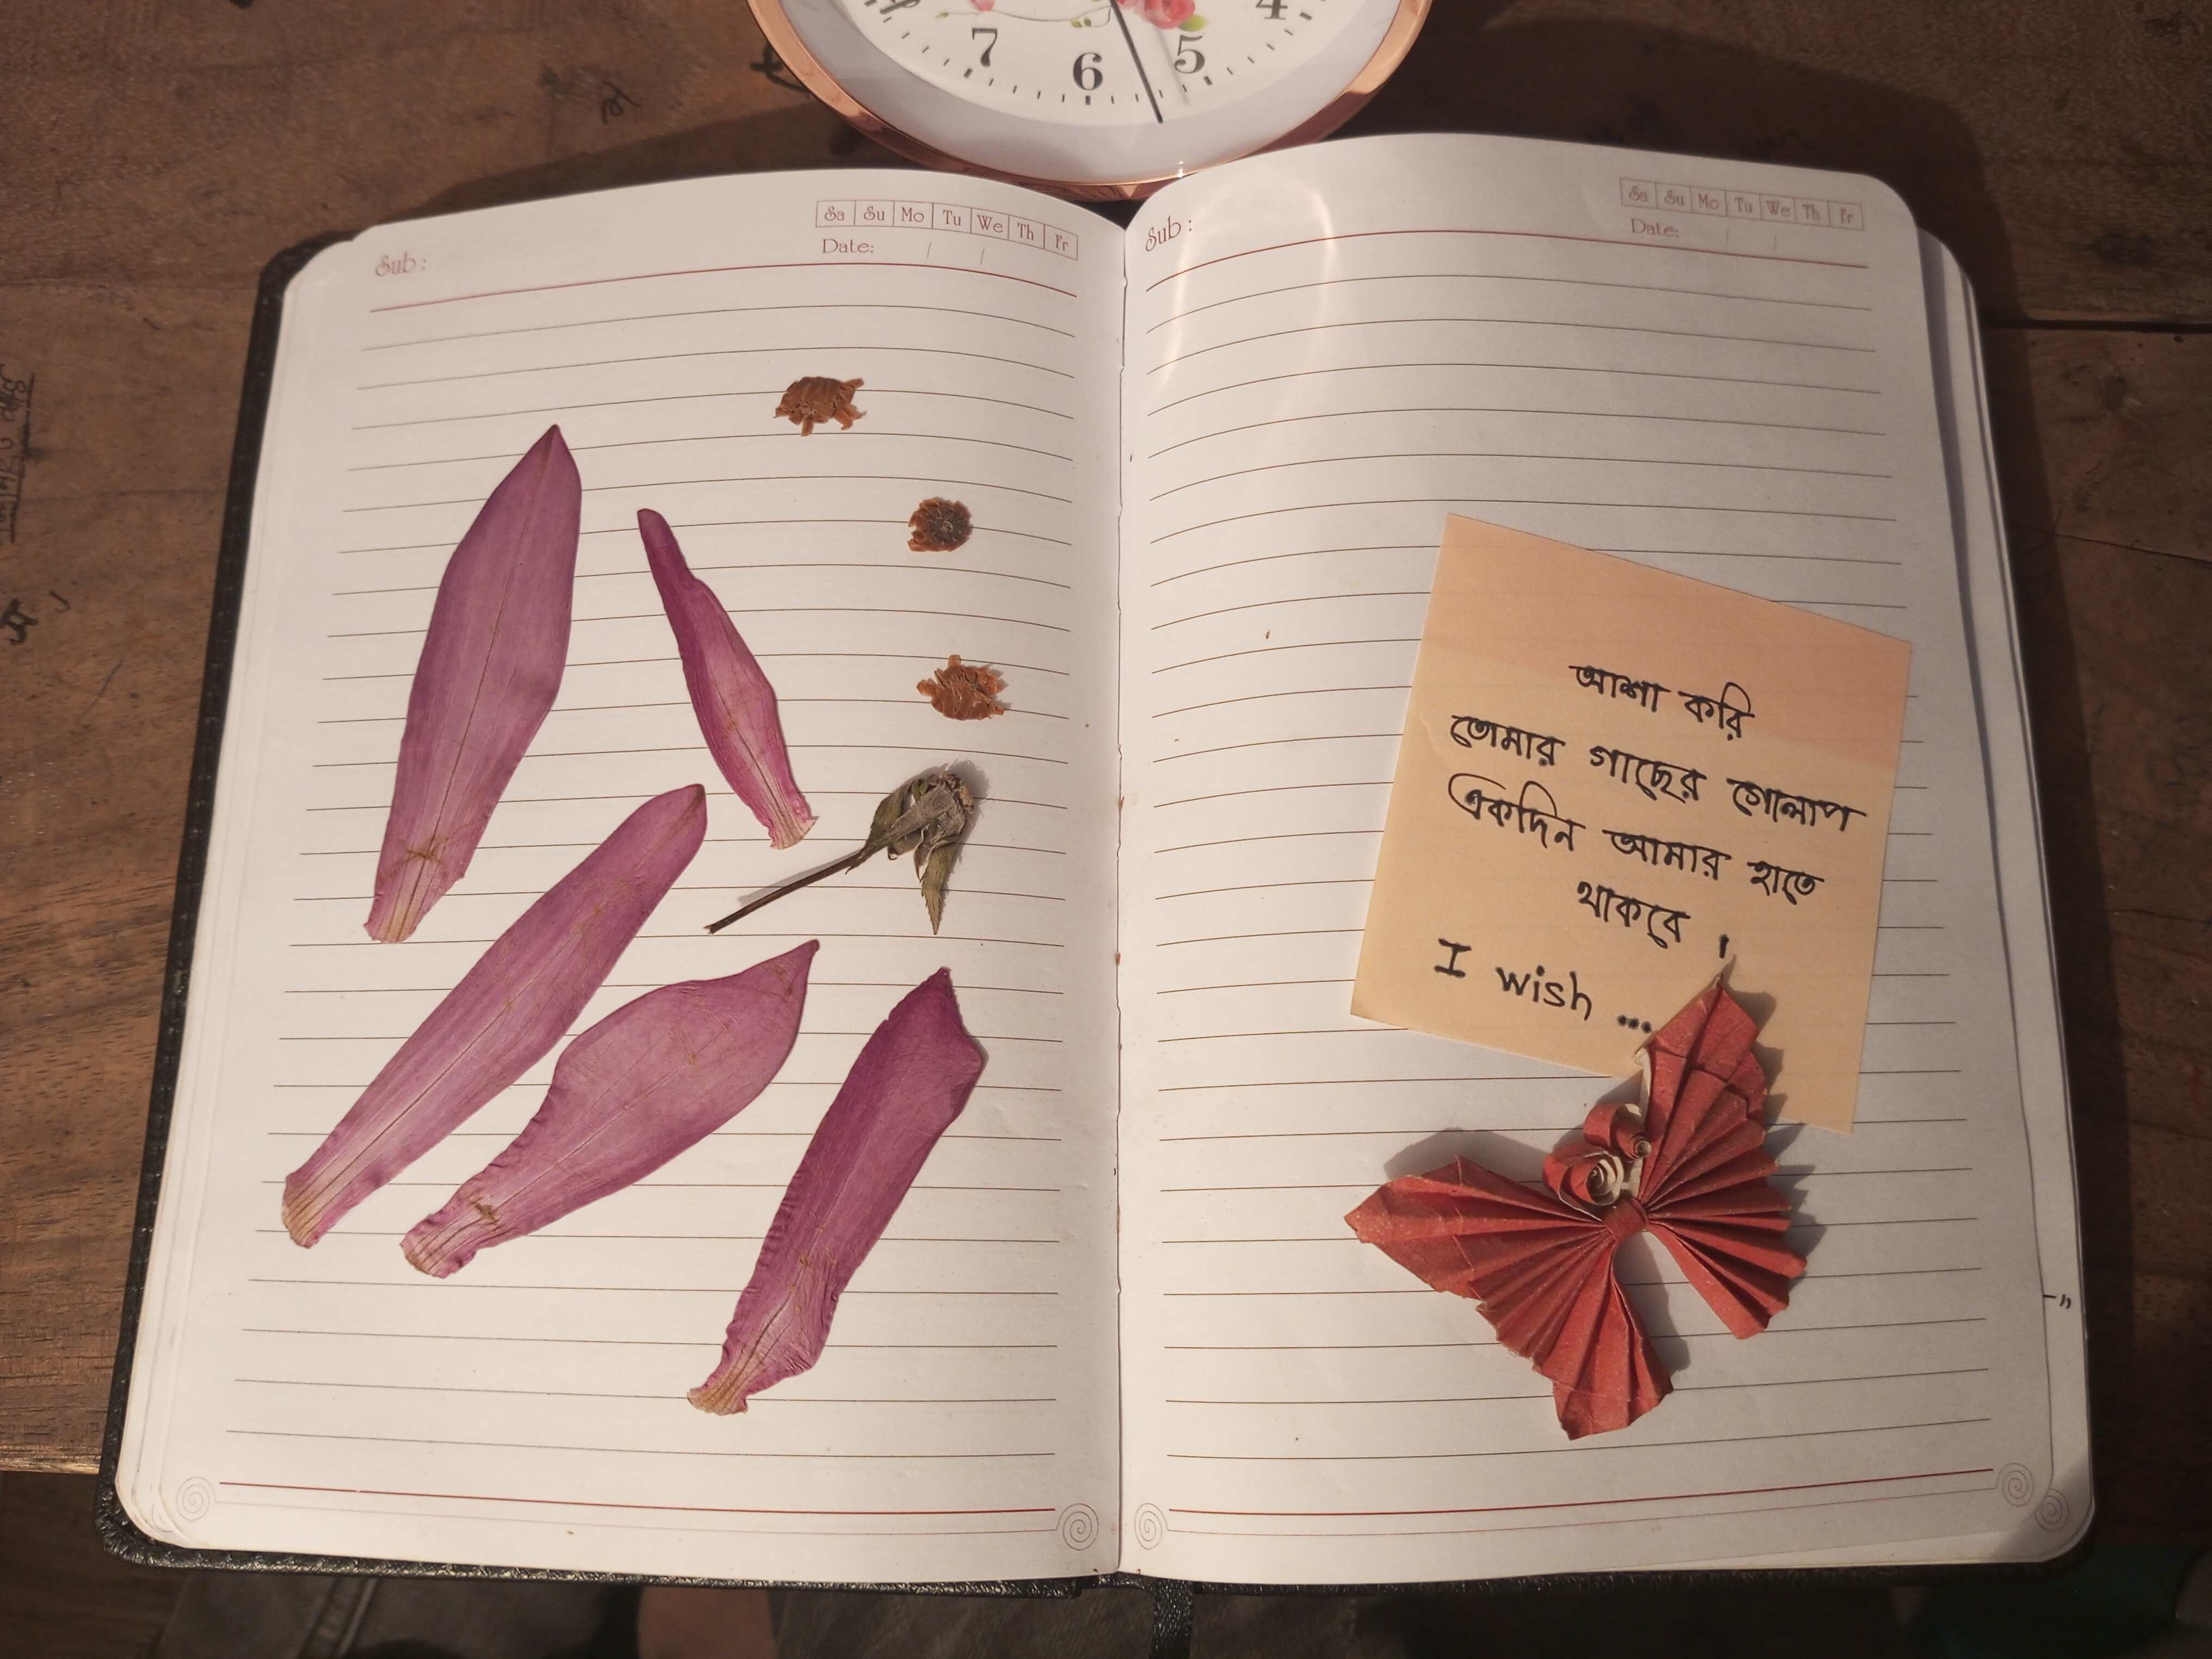 7 6 5 4
Sa Su Mo Tu We Th Fr
Date:
Sub :
Sa Su Mo Tu We Th Fr
Date:
Sub :
আশা করি
তোমার গাছের গোলাপ
একদিন আমার হাতে
থাকবে !
I wish ...